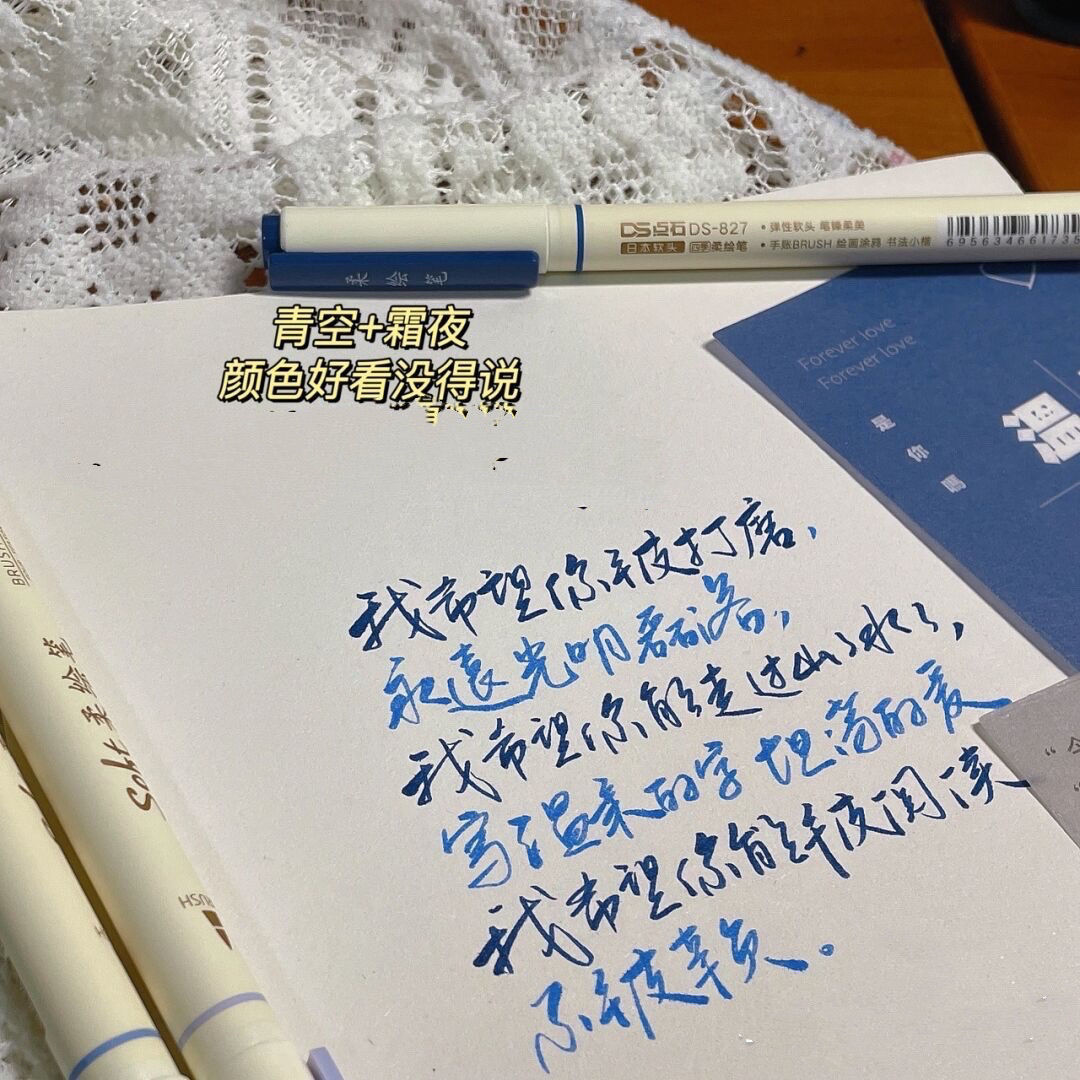 DS点石 DS-827 • 弹性软头 笔锋柔美
日本软头 柔绘笔 • 手账BRUSH 绘画涂鸦 书法小楷
6956346617358
柔绘笔
青空+霜夜
颜色好看没得说
Forever love
Forever love
是
你
啊
温
我希望你被打磨，
永遠光明磊落，
我希望你能走过山々水々，
写温柔的字 坦荡的爱
我希望你能被阅读
不被辜负。
BRUSH
Soft 柔绘笔